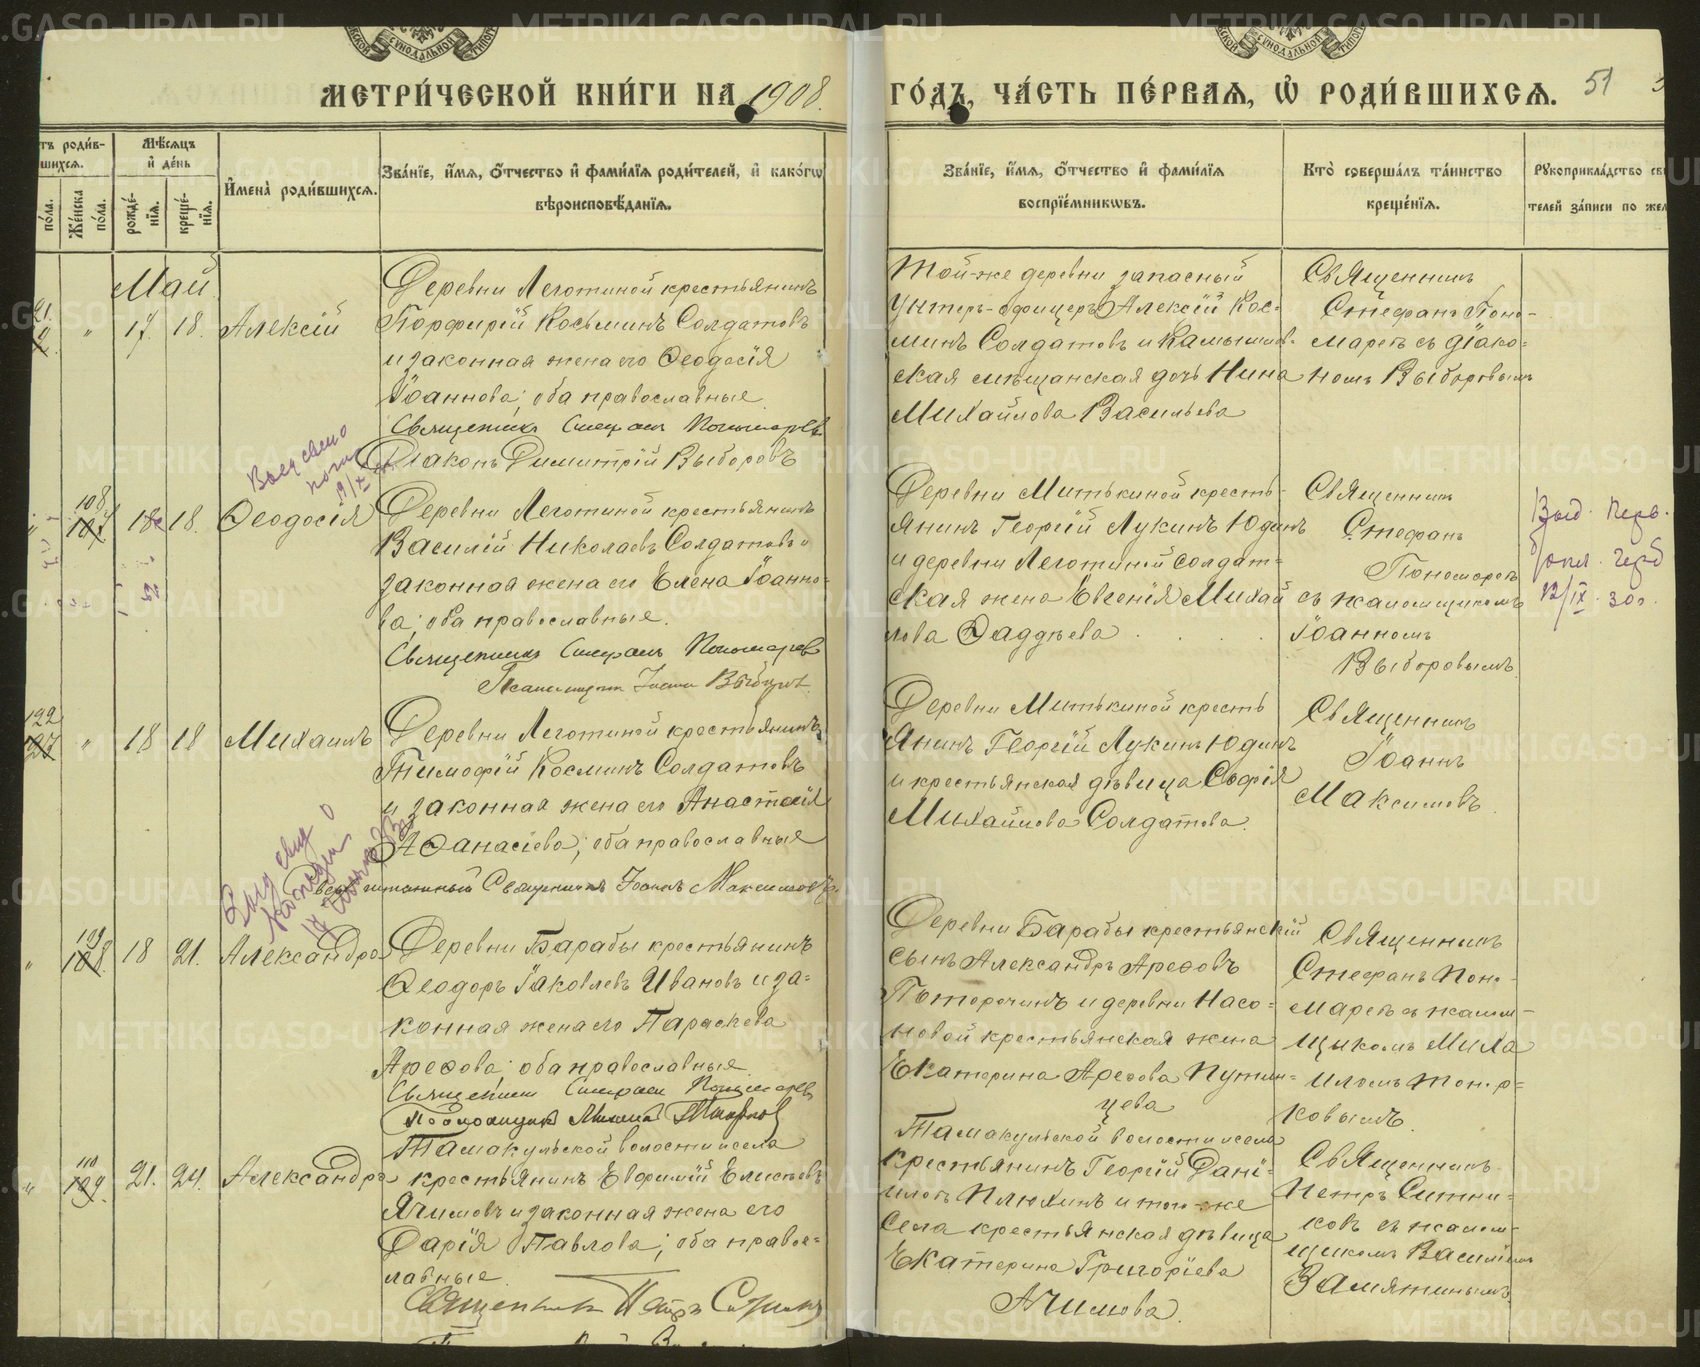 МЕТРИ́ЧЕСКОЙ КНИ́ГИ НА 1908
ГО́ДЪ, ЧА́СТЬ ПЕ́РВАѦ, Ѡ РОДИ́ВШИХСѦ. 51
тъ роди́в-
шихся.
по́ла.
Же́нска
по́ла.
Мѣ́сяцъ
и де́нь
рожде́-
нїя.
креще́-
нїя.
Имена̀ роди́вшихся.
Зва́нїе, и́мя, о́тчество и фами́лїя роди́телей, и како́гѡ
вѣроисповѣ́данїя.
Зва́нїе, и́мя, о́тчество и фами́лїя
воспрїе́мникѡвъ.
Кто̀ соверша́лъ та́инство
креще́нїя.
Рукоприкла́дство св
телей за́писи по жел
Май
21
"
17. 18. Алексій
Деревни Леготиной крестьянинъ
Порфирій Косьминъ Солдатовъ
и законная жена его Ѳеодосія
Іоаннова; оба православные
Священникъ Стефанъ Пономаревъ
Діаконъ Димитрій Выборовъ
Той-же деревни запасный
унтеръ-офицеръ Алексій Кос-
минъ Солдатовъ и Камышлов-
ская мѣщанская дочь Нина
Михайлова Васильева
Священникъ
Стефанъ Поно-
маревъ съ діако-
номъ Выборовымъ
108
107
18 18. Ѳеодосія
Деревни Леготиной крестьянинъ
Василій Николаевъ Солдатовъ и
законная жена его Елена Іоанно-
ва; оба православные.
Священникъ Стефанъ Пономаревъ
Псаломщикъ Іоаннъ Выборовъ
Деревни Митькиной кресть-
янинъ Георгій Лукинъ Юдинъ
и деревни Леготиной солдат-
ская жена Евгенія Михай
лова Ѳаддѣева
Священникъ
Стефанъ
Пономаревъ
съ псаломщикомъ
Іоанномъ
Выборовымъ.
12/IX 30 г.
122
"
18 18 Михаилъ
Деревни Леготиной крестьянинъ
Тимофій Косминъ Солдатовъ
и законная жена его Анастасія
Аѳанасіева; оба православные
Священникъ Іоаннъ Максимовъ
Деревни Митькиной кресть
янинъ Георгій Лукинъ Юдинъ
и крестьянская дѣвица Софія
Михайлова Солдатова.
Священникъ
Іоаннъ
Максимовъ
109
108.
"
18 21. Александра
Деревни Барабы крестьянинъ
Ѳеодоръ Іаковлевъ Ивановъ и за-
конная жена его Параскева
Ареѳова; оба православные.
Священникъ Стефанъ Пономаревъ
Псаломщикъ Михаилъ Топорковъ
Деревни Барабы крестьянскій
сынъ Александръ Ареѳовъ
Поторочинъ и деревни Насо-
новой крестьянская жена
Екатерина Ареѳова Путин-
цева
Священникъ
Стефанъ Поно-
маревъ съ псалом-
щикомъ Миха
иломъ Топор-
ковымъ.
110
109.
"
21. 24. Александра
Тамакульской волости и села
крестьянинъ Евфимій Елисѣевъ
Ячимовъ и законная жена его
Дарія Павлова; оба право-
славные.
Священникъ Петръ Ситниковъ
Тамакульской волости и села
крестьянинъ Георгій Дані-
иловъ Плюхинъ и того-же
села крестьянская дѣвица
Екатерина Григоріева
Ячимова.
Священникъ
Петръ Ситни-
ковъ съ псалом-
щикомъ Василіемъ
Замятинымъ.
METRIKI.GASO-URAL.RU